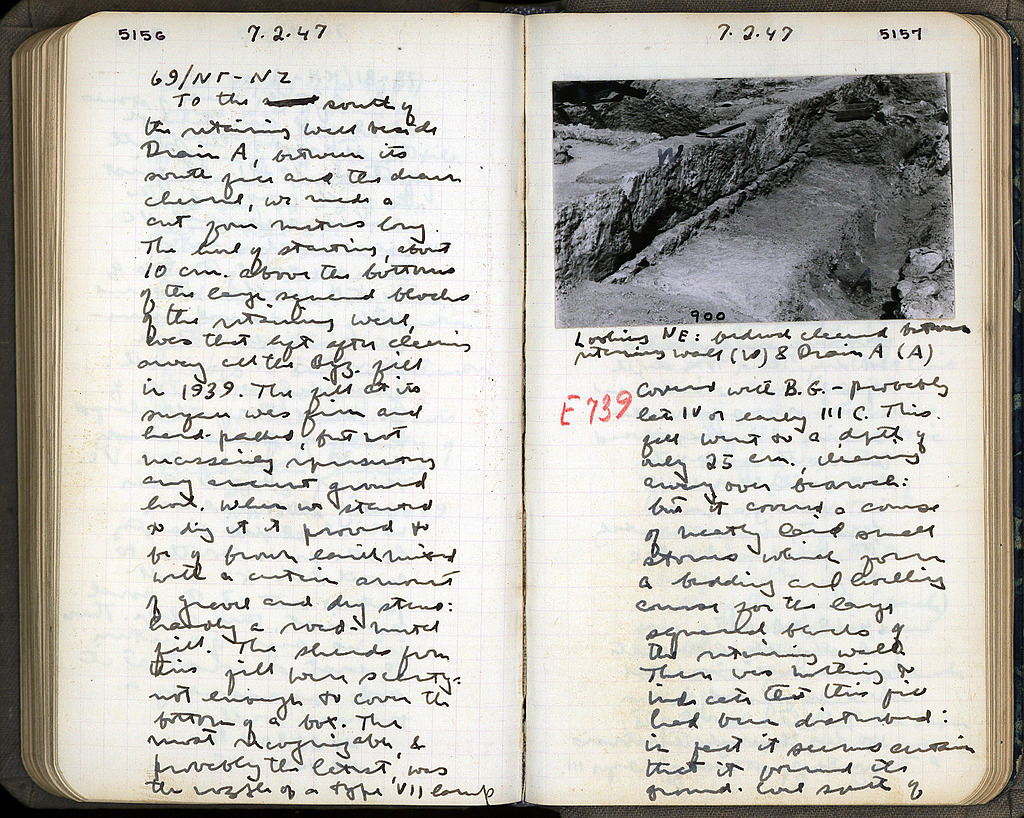 5156
7.2.47
69/ΝΓ-ΝΖ
To the south of
the retaining wall beside
Drain A, between its
south face and the drain
channel, we made a
cut four metres long.
The level of starting, about
10 cm. above the bottoms
of the large squared blocks
of the retaining wall,
was that left after clearing
away all the Byz. fill
in 1939. The fill at its
surface was firm and
hard-packed but not
necessarily representing
any ancient ground
level. When we started
to dig it it proved to
be of brown earth mixed
with a certain amount
of gravel and dug stone:
hardly a road-metal
fill. The sherds from
this fill were scanty:
not enough to cover the
bottom of a box. The
most recognizable, &
probably the latest, was
the nozzle of a type VII lamp
7.2.47
5157
W
A
900
Looking NE: bedrock cleared between
retaining wall (W) & Drain A (A)
E 739
covered with B.G. - probably
late IV or early III C. This
fill went to a depth of
only 25 cm.,
away over bedrock:
but it covered a course
of neatly laid small
stones which form
a bedding and levelling
course for the large
squared blocks of
the retaining wall.
There was nothing to
indicate that this fill
had been disturbed:
in fact it seems certain
that it formed the
ground level south of